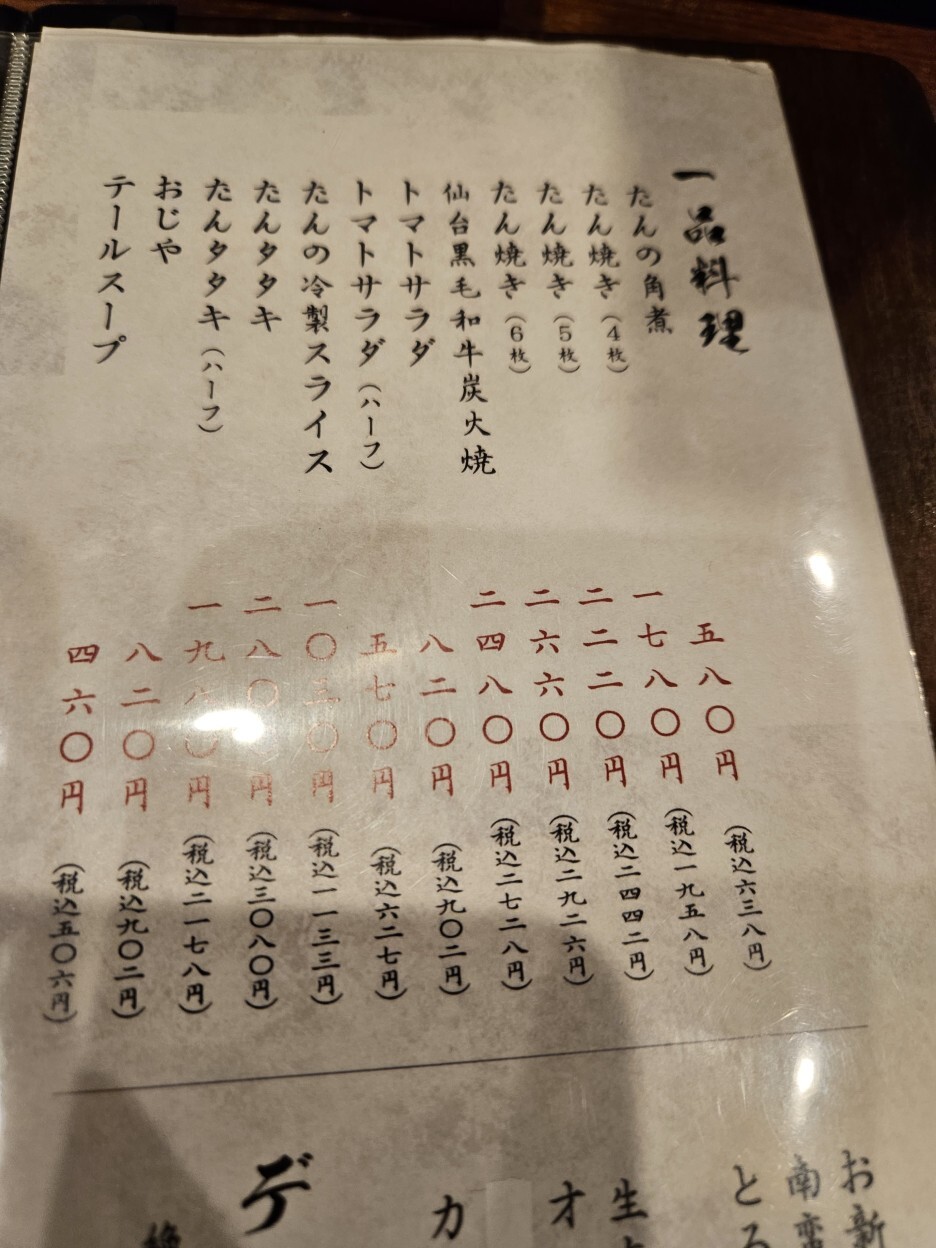 一品料理
たんの角煮 五八〇円 (税込六三八円)
たん焼き(4枚) 一七八〇円 (税込一九五八円)
たん焼き(5枚) 二二二〇円 (税込二四四二円)
たん焼き(6枚) 二六六〇円 (税込二九二六円)
仙台黒毛和牛炭火焼 二四八〇円 (税込二七二八円)
トマトサラダ 八二〇円 (税込九〇二円)
トマトサラダ(ハーフ) 五七〇円 (税込六二七円)
たんの冷製スライス 一〇三〇円 (税込一一三三円)
たんタタキ 二八〇〇円 (税込三〇八〇円)
たんタタキ(ハーフ) 一九八〇円 (税込二一七八円)
おじや 八二〇円 (税込九〇二円)
テールスープ 四六〇円 (税込五〇六円)
お新
南蛮
とろ
生
オ
カ
デ